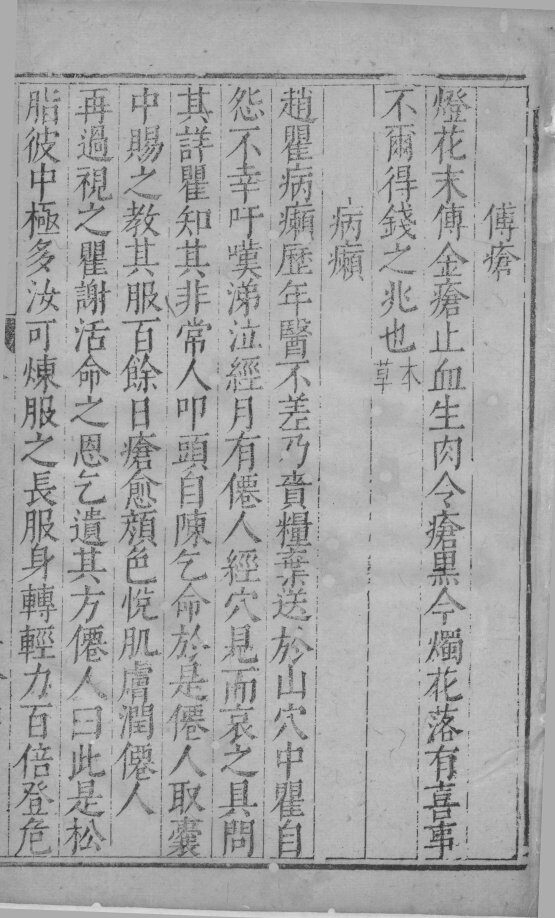 傅瘡
燈花末傅金瘡止血生肉令瘡黒今燭花落有喜事
不爾得錢之兆也本草
病癩
趙瞿病癩歷年醫不差乃賷糧棄送於山穴中瞿自
怨不幸吁嘆涕泣經月有僊人經穴見而哀之具問
其詳瞿知其非常人叩頭自陳乞命於是僊人取囊
中賜之教其服百餘日瘡愈顔色悅肌膚潤僊人
再過視之瞿謝活命之恩乞遺其方僊人曰此是松
脂彼中極多汝可煉服之長服身轉輕力百倍登危